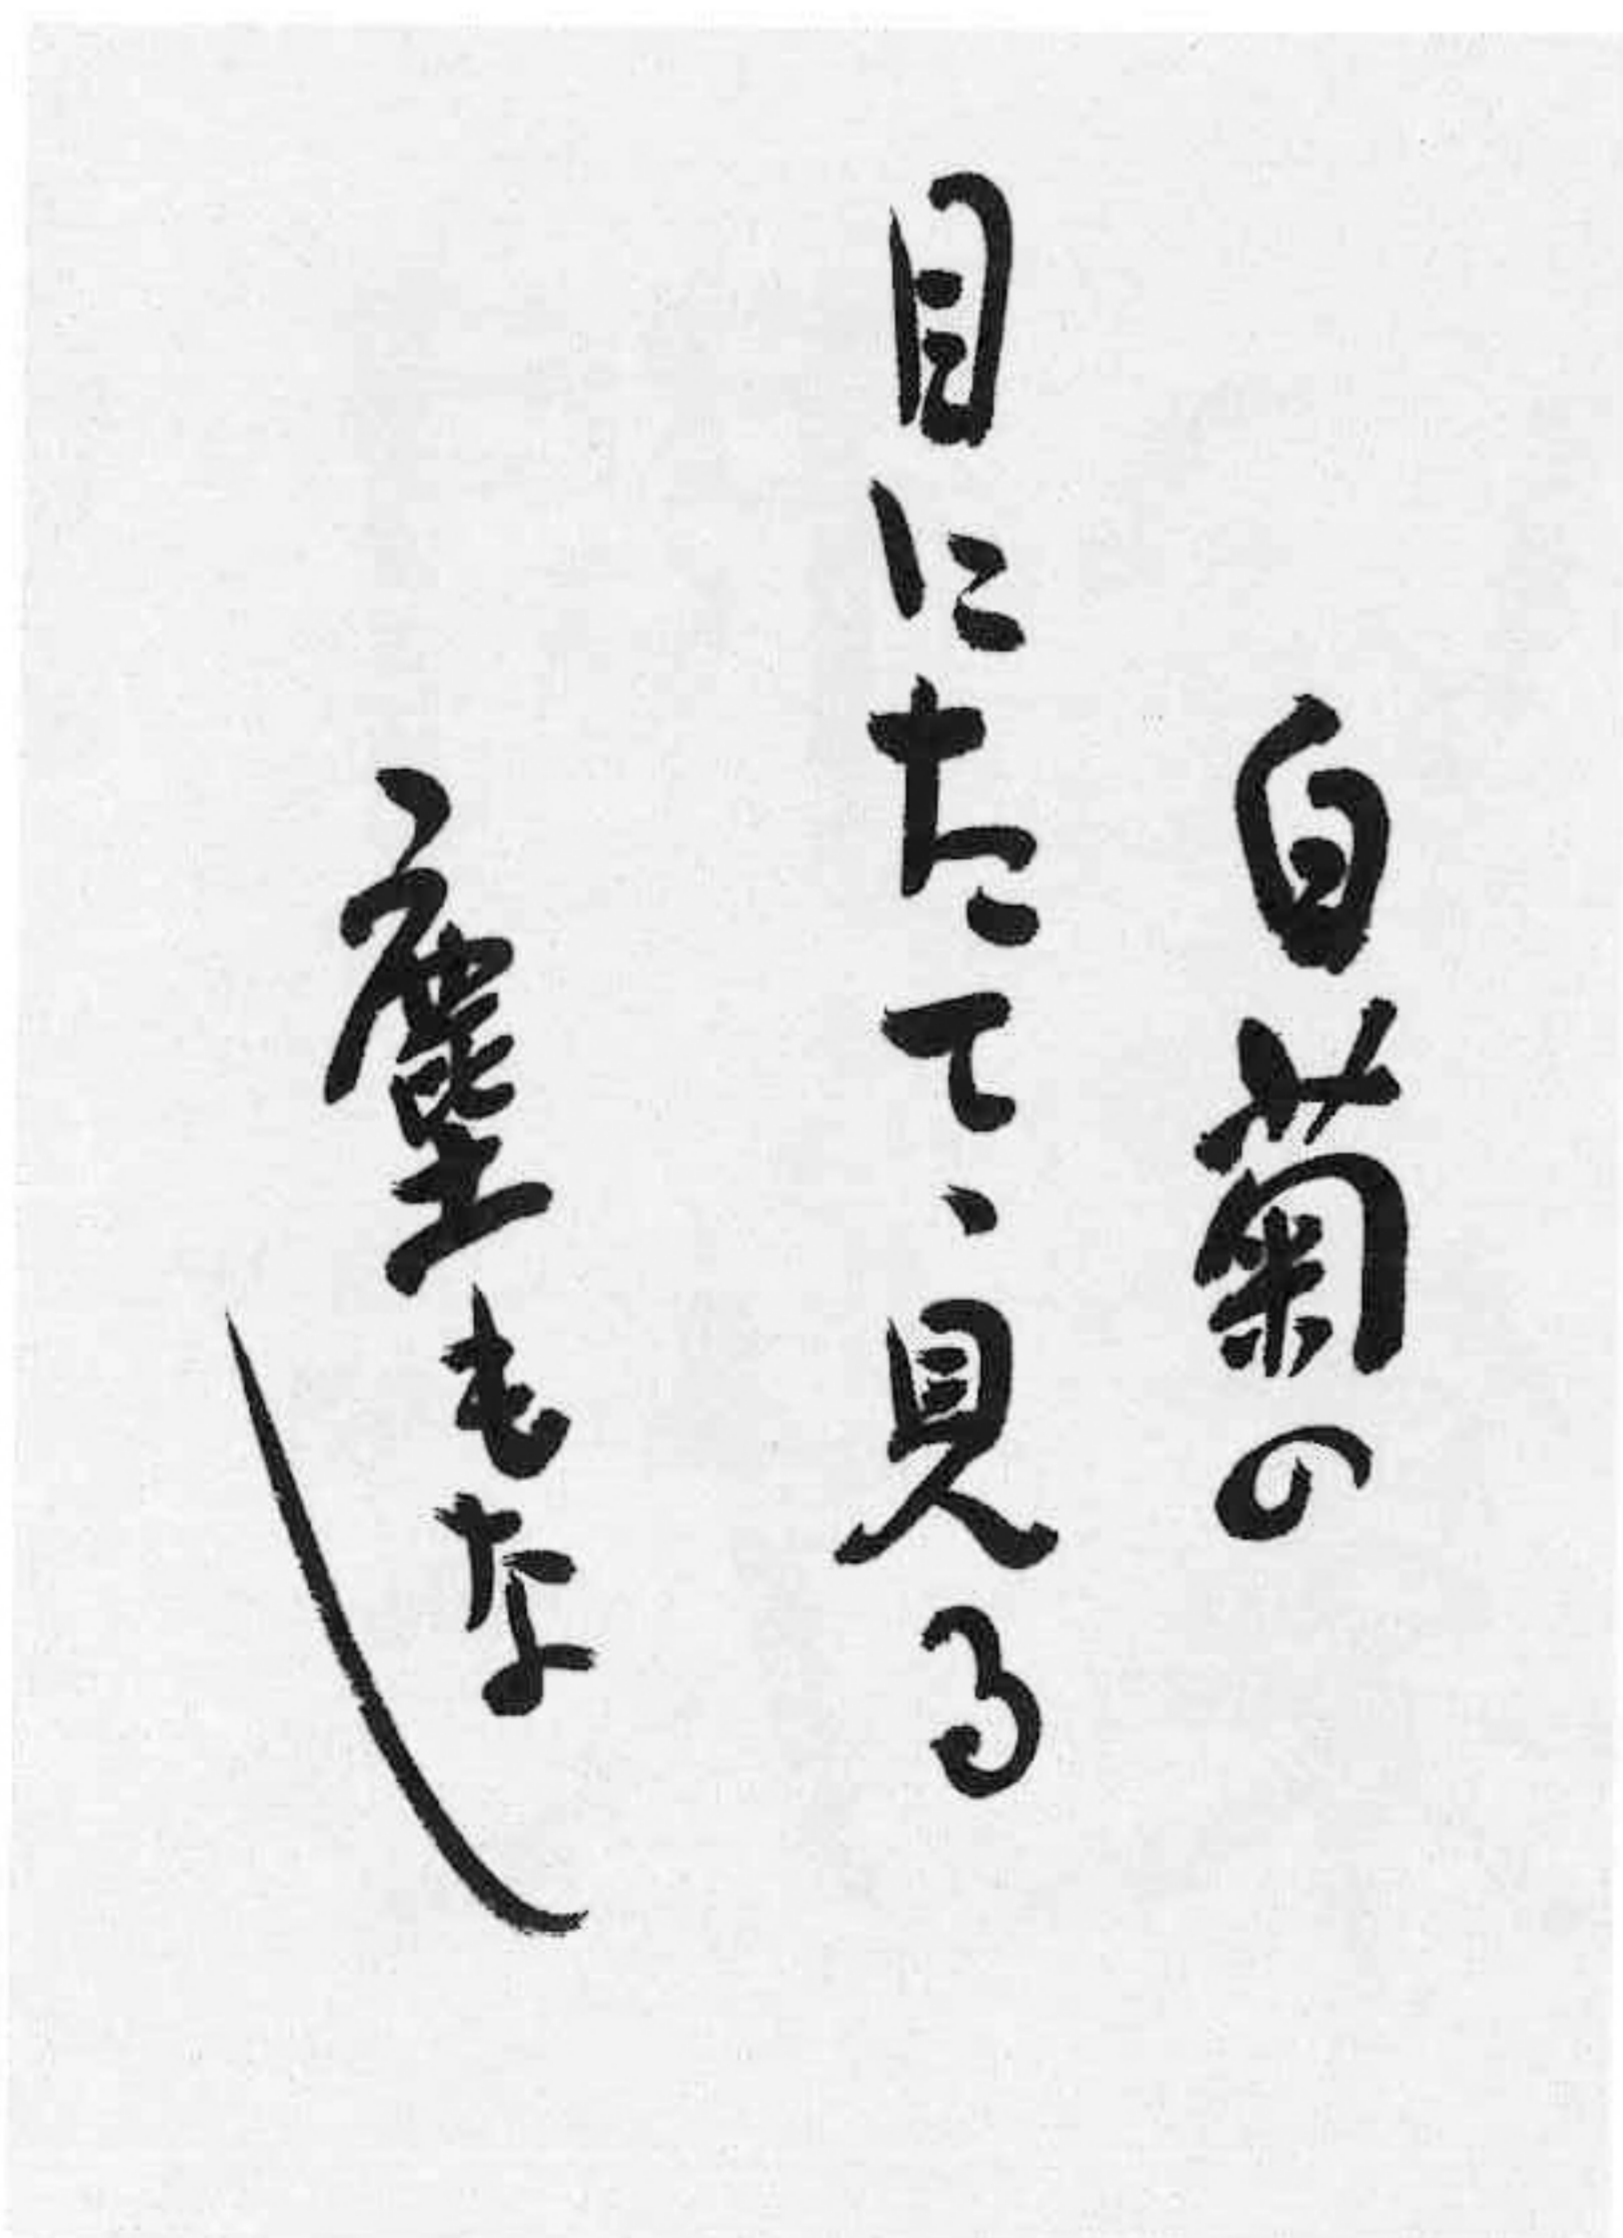 白菊の
目にたてゝ見る
塵もなし